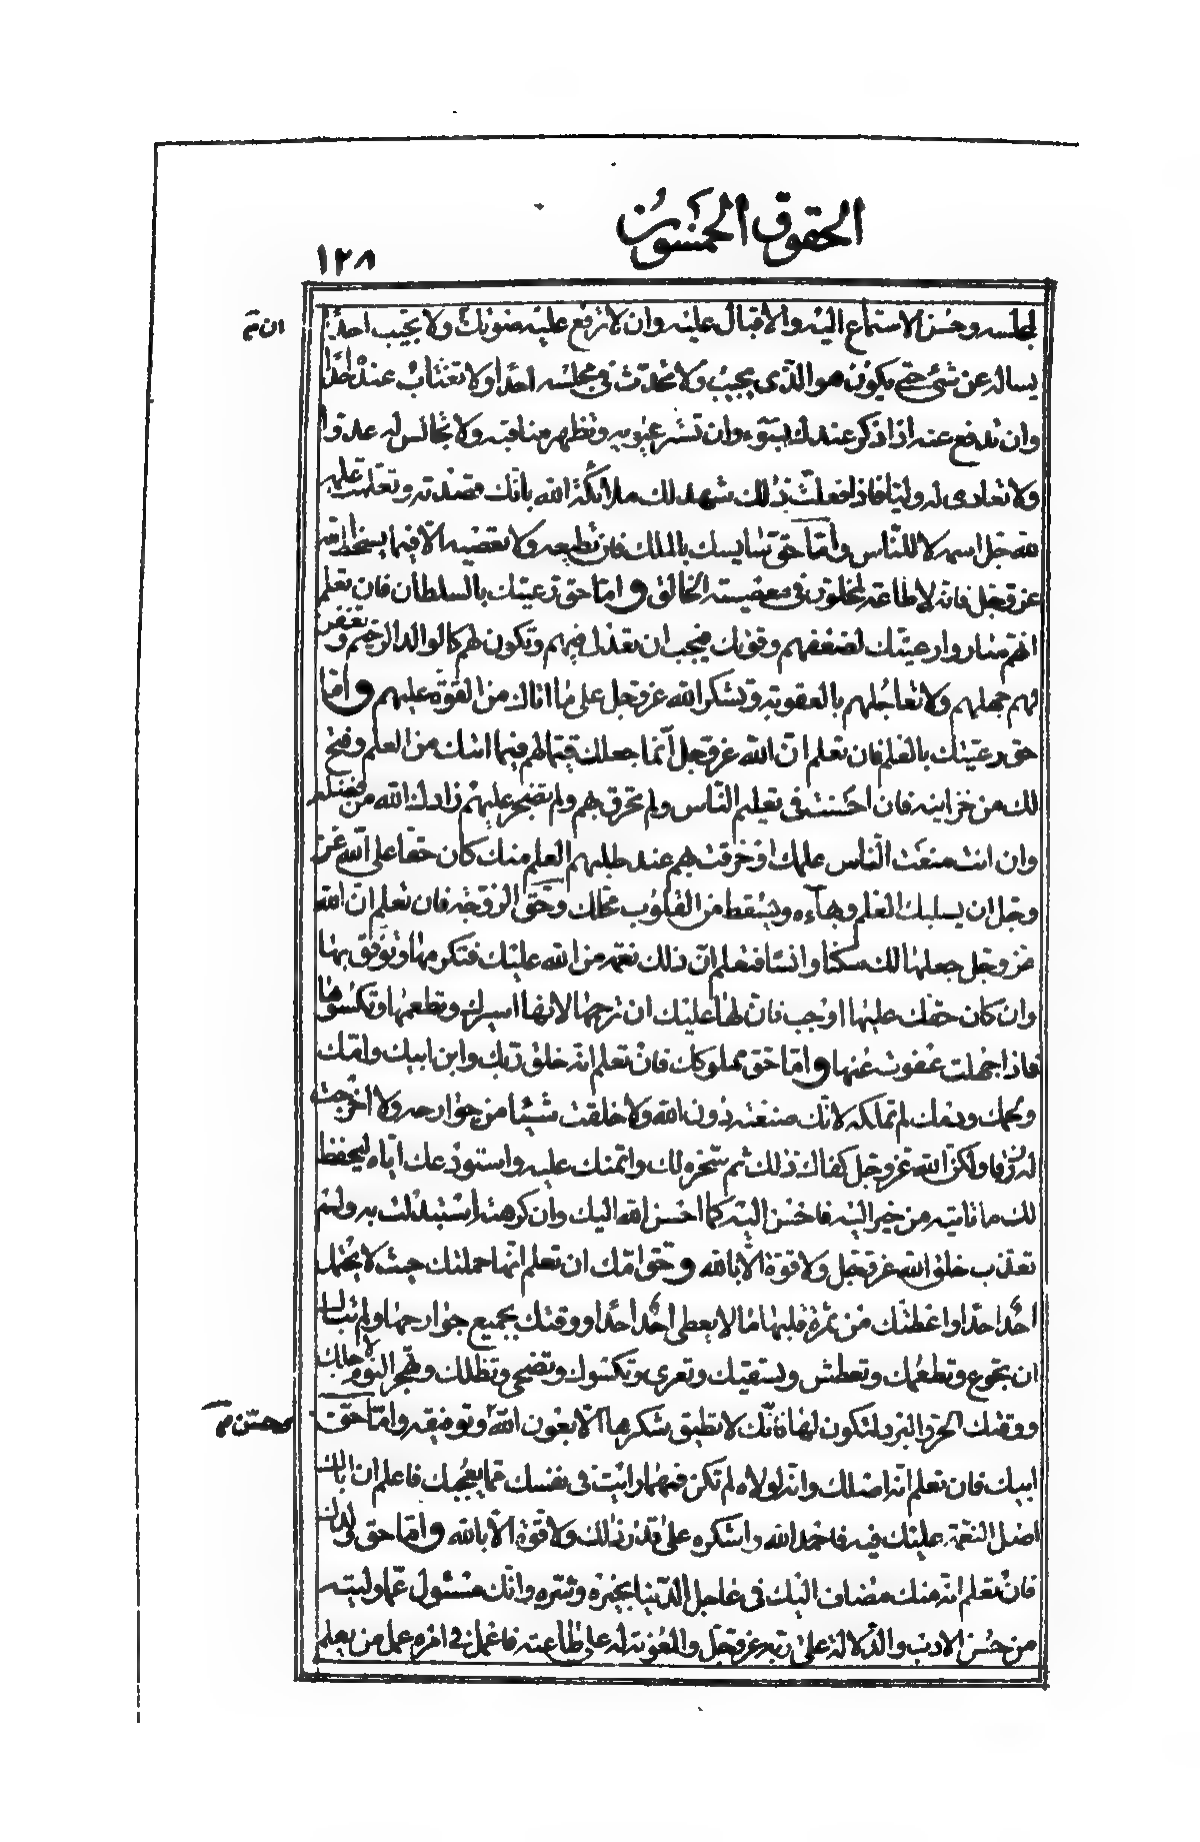 الحقوق الخمسون
١٢٨
لمجلسه وحسن الاستماع اليه والاقبال عليه وان لا ترفع عليه صوتك ولا تجيب احداً
يساله عن شئ حتى يكون هو الذى يجيب ولا تحدث فى مجلسه احدا ولا تغتاب عنده احدا
وان تدفع عنه اذا ذكر عندك بسوء وان تستر عيوبه وتظهر مناقبه ولا تجالس له عدوا
ولا تعادى له وليا فاذا فعلت ذلك شهد لك ملائكة الله بانك قصدته وتعلمت علمه
لله جل اسمه لا للناس واما حق سايسك بالملك فان تطيعه ولا تعصيه الا فيما يسخط الله
عز وجل فانه لا طاعة لمخلوق فى معصية الخالق واما حق رعيتك بالسلطان فان تعلم
انهم صاروا رعيتك لضعفهم وقوتك فيجب ان تعدل فيهم وتكون لهم كالوالد الرحيم وتغفر
لهم جهلهم ولا تعاجلهم بالعقوبة وتشكر الله عز وجل على ما اتاك من القوة عليهم واما
حق رعيتك بالعلم فان تعلم ان الله عز وجل انما جعلك قيما لهم فيما اتىك من العلم وفتح
لك من خزاينه فان احسنت فى تعليم الناس ولم تخرق بهم ولم تضجر عليهم زادك الله من فضله
وان انت منعت الناس علمك او خرقت بهم عند طلبهم العلم منك كان حقا على الله عز
وجل ان يسلبك العلم وبهاءه ويسقط من القلوب محلك وحق الزوجة فان تعلم ان الله
عز وجل جعلها لك سكنا وانسا فتعلم ان ذلك نعمة من الله عليك فتكرمها وترفق بها
وان كان حقك عليها اوجب فان لها عليك ان ترحمها لانها اسيرك وتطعمها وتكسوها
فاذا جهلت عفوت عنها واما حق مملوكك فان تعلم انه خلق ربك وابن ابيك وامك
ولحمك ودمك لم تملكه لانك صنعته دون الله ولا خلقت شيئا من جوارحه ولا اخرجت
له رزقا ولكن الله عز وجل كفاك ذلك ثم سخره لك وائتمنك عليه واستودعك اياه ليحفظ
لك ما تاتيه من خير اليه فاحسن اليه كما احسن الله اليك وان كرهته استبدلت به ولم
تعذب خلق الله عز وجل ولا قوة الا بالله وحق امك ان تعلم انها حملتك حيث لا يحتمل
احد احدا واعطتك من ثمرة قلبها ما لا يعطى احد احدا ووقتك بجميع جوارحها ولم تبال
ان تجوع وتطعمك وتعطش وتسقيك وتعرى وتكسوك وتضحى وتظلك وتهجر النوم لاجلك
ووقتك الحر والبرد لتكون لها فانك لا تطيق شكرها الا بعون الله وتوفيقه واما حق
ابيك فان تعلم انه اصلك وانه لولاه لم تكن فمهما رايت فى نفسك مما يعجبك فاعلم ان اباك
اصل النعمة عليك فيه فاحمد الله واشكره على قدر ذلك ولا قوة الا بالله واما حق ولدك
فان تعلم انه منك ومضاف اليك فى عاجل الدنيا بخيره وشره وانك مسئول عما وليته
من حسن الادب والدلالة على ربه عز وجل والمعونة له على طاعته فاعمل فى امره عمل من يعلم